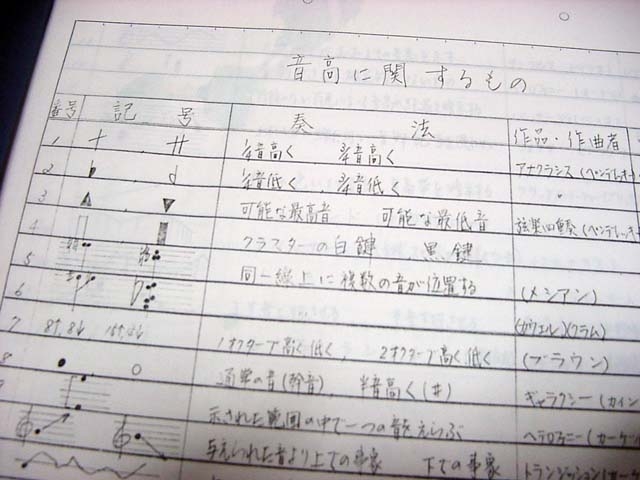 音高に関するもの
番号 記号 奏法 作品・作曲者
1 音高く 音高く アナクラシス(ペンデレ
2 音低く 音低く
3 可能な最高音 可能な最低音 弦楽四重奏(ペンデレ
4 クラスターの白鍵 黒鍵
5 同一線上に複数の音が位置する (メシアン)
6
7 8va, 8vb, 1オクターブ高く低く、 2オクターブ高く低く (クラム)
8 通常の音(幹音)、 半音高く(#) (ブラウン)
9 示された範囲の中で一つの音をえらぶ ギャラクシー(
与えられた音より上での事象 下での事象 ヘテロフォニー(
トランジッション(